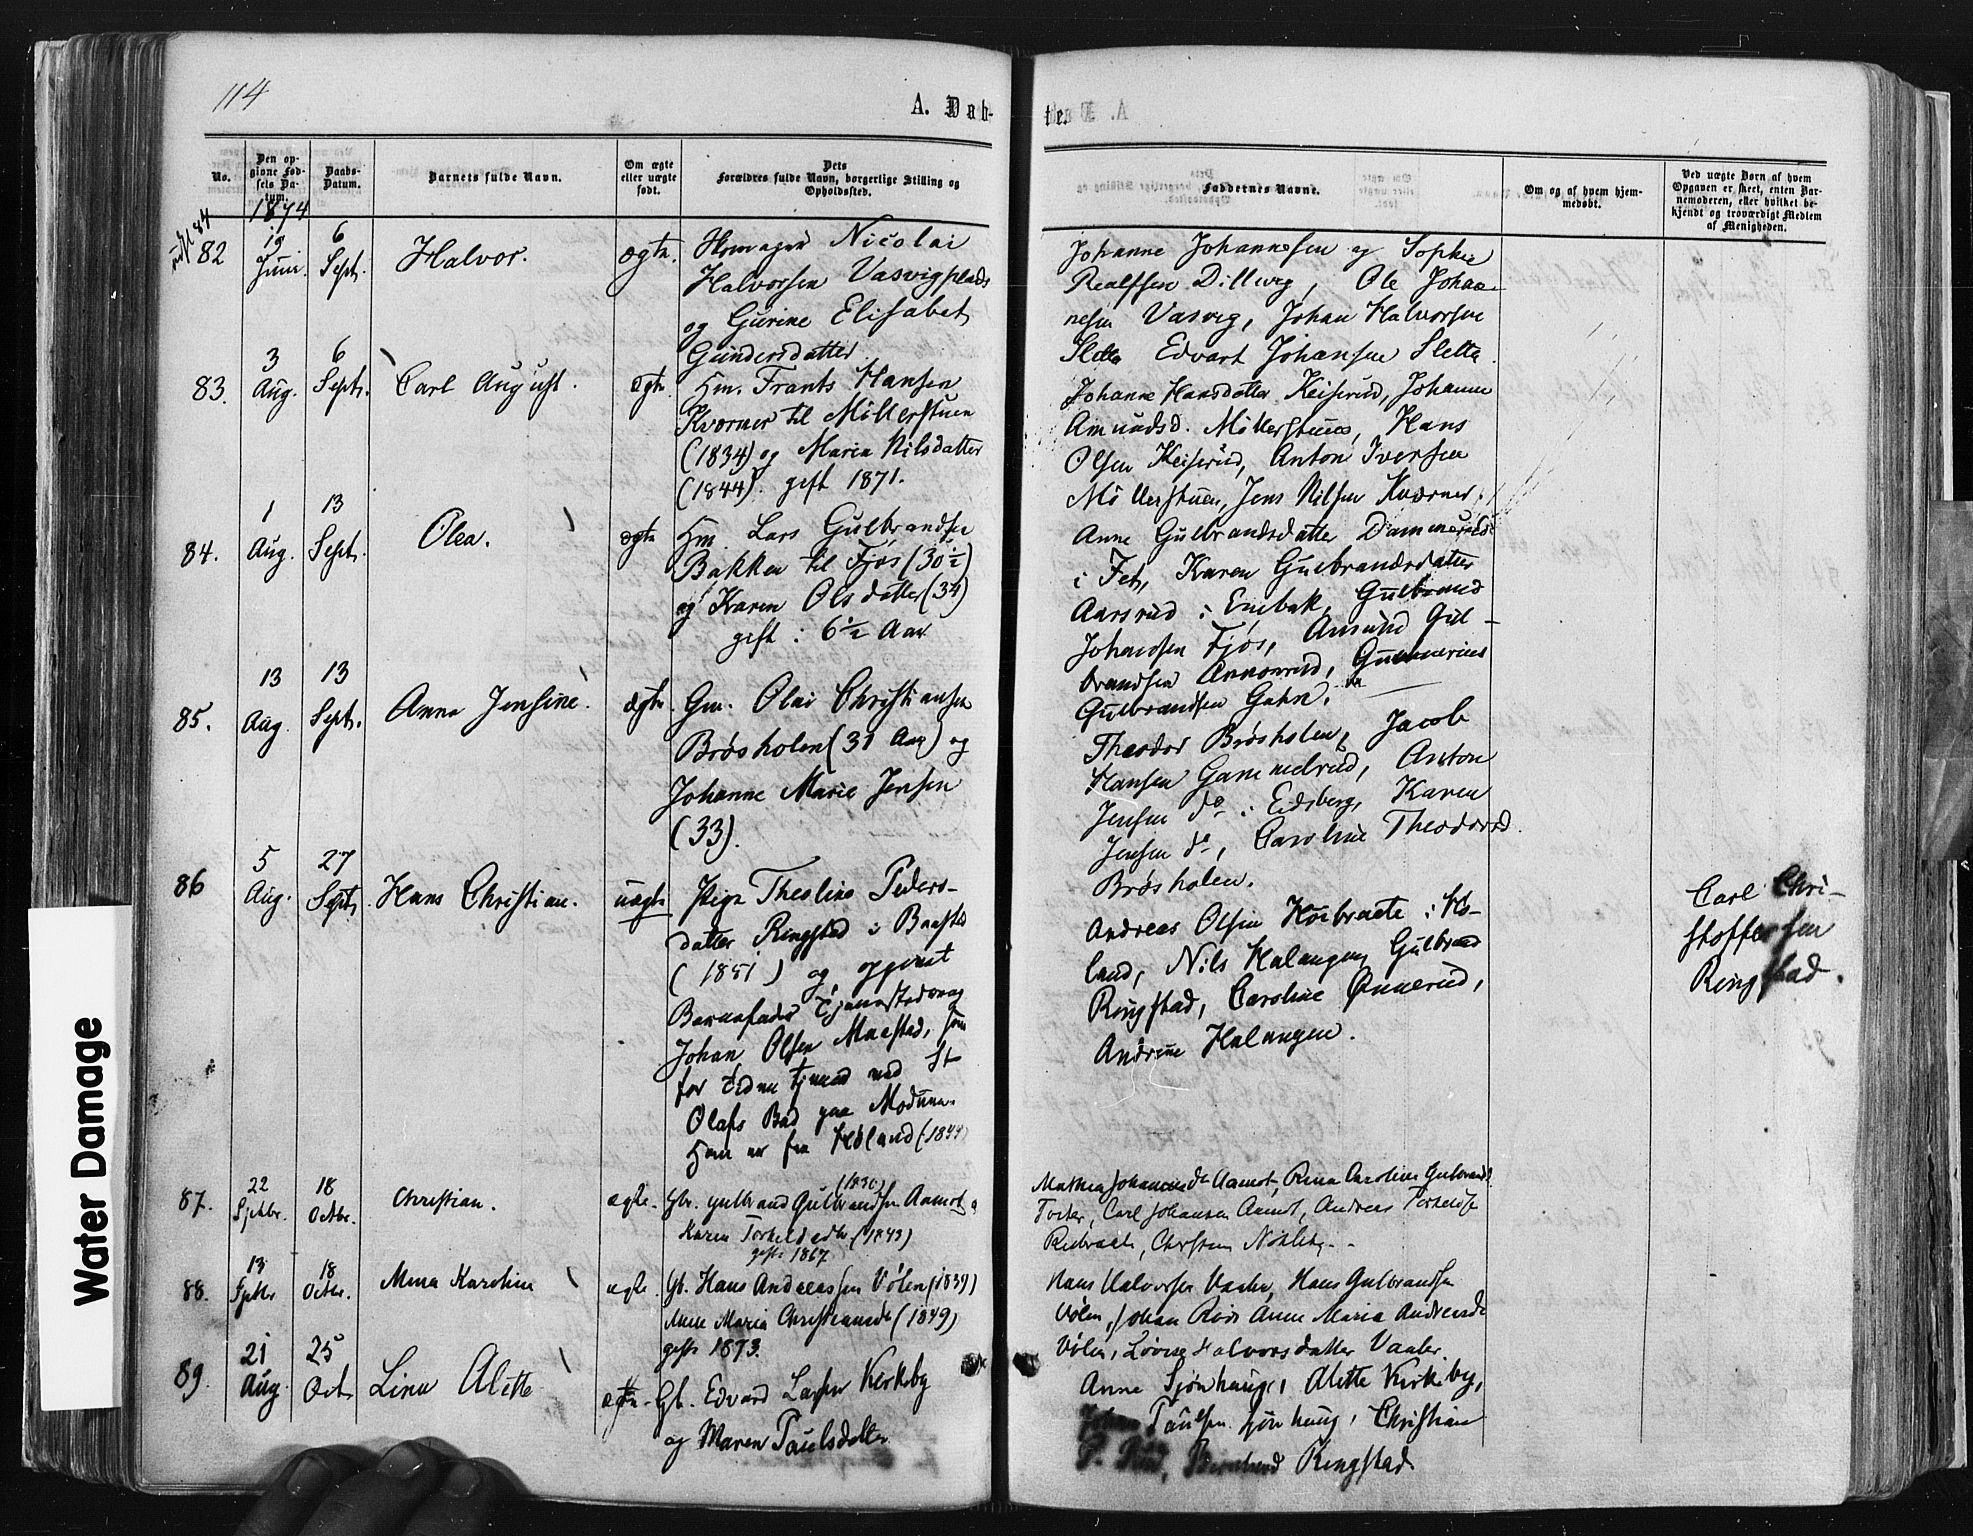 114
A. Dab-
te.
No.
Den op-
givne Fød-
sels Da-
tum.
Daabs-
Datum.
Barnets fulde Navn.
Om ægte
eller uægte
født.
Dets
Forældres fulde Navn, borgerlige Stilling og
Opholdssted.
Faddernes Navne.
Om og af hvem hjem-
medøbt.
Ved uægte Børn af hvem
Opgaven er skeet, enten Bar-
nemoderen, eller hvilket be-
kjendt og troværdigt Medlem
af Menigheden.
1874
82
19
Juni
6
Sept.
Halvor.
ægte.
Nicolai
Halvorsen Vasvigplads
og Gurine Elisabet
Gundersdatter
Johanne Johannesen og Sophie
Realfsen Dillevig, Ole Johan-
nesen Vasvig, Johan Halvorsen
Sletta Edvart Johansen Sletta.
83.
3
Aug.
6
Sept.
Carl August.
ægte
Hm. Frants Hansen
Kværner til Møllerstuen
(1834) og Maria Nilsdatter
(1844). gift 1871.
Johanne Hansdatter Keiserud, Johanne
Amundsd. Møllerstuen, Hans
Olsen Keiserud, Anton Iversen
Møllerstuen, Jens Nilsen Kværner.
84.
1
Aug.
13
Sept.
Olea.
ægte
Hm. Lars Gulbrandsen
Bakken til Fjøs (30 1/2)
og Karen Olsdatter (34)
gift i 6 1/2 Aar
Anne Gulbrandsdatter Dammerud
i Fet, Karen Gulbrandsdatter
Aarsrud i Enebak, Gulbrand
Johansen Fjøs, Amund Gul-
brandsen Annonrud, Gunnerius
Gulbrandsen Gahn.
85.
13
Aug.
13
Sept.
Anna Jensine.
ægte
Gm. Olai Christiansen
Brøsholen (31 Aar) og
Johanne Marie Jensen
(33).
Theodor Brøsholen, Jacob
Hansen Gammelrud, Anton
Jensen do i Eidsberg, Karen
Jensen do, Caroline Theodorsd.
Brøsholen.
86
5
Aug.
27
Sept.
Hans Christian.
uægte
Pige Theoline Peders-
datter Ringstad i Baastad
(1851) og opgivet
Barnefader Tjenestedreng
Johan Olsen Maastad, som
for Tiden tjener ved St
Olafs Bad paa Modum.
Han er fra Høland (1849)
Andreas Olsen Kørbraate i Hø-
land, Nils Halangen, Gulbrand
Ringstad, Caroline Ønnerud,
Andrine Halangen.
Carl Chri-
stoffersen
Ringstad.
87.
22
Septbr.
18
Octbr.
Christian.
ægte.
(1830)
Gbr. Gulbrand Gulbrandsen Aamot
Karen Torkeldsdtr (1843)
gifte 1867
Mathea Johannesdr Aamot, Rina Caroline Gulbrands
Carl Johansen Aamot, Andreas
88.
13
Septbr
18
Octbr.
Mena Karoline
ægte.
Gb. Hans Andreassen Vølen (1839)
Maria Christiansdr (1849)
gifte 1873.
Hans Halvorsen Vaaler, Hans Gulbrandsen
Vølen, Johan Anne Maria Andreasdr
Vølen, Lovise Halvorsdatter Vaaler.
89.
21
Aug.
25
Oct.
Lina Alette
ægte.
Gb. Edvard Larsen Kirkeby
og Maren Paulsdatter
Anne Sjønhaug, Alette Kirkeby,
Johan Paulsen Sjønhaug, Christian
P. Rud, Bernhard Ringstad
Water Damage